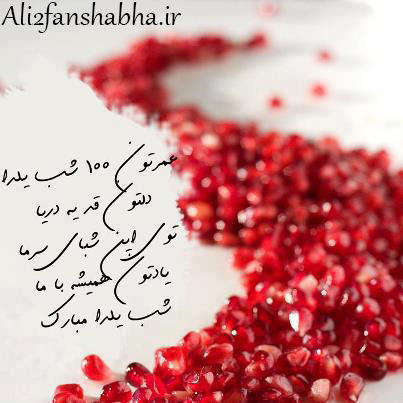 Ali2fanshabha.ir
عمرتون ۱۰۰ شب یلدا
دلتون قد یه دریا
توی این شبای سرما
یادتون همیشه با ما
شب یلدا مبارک